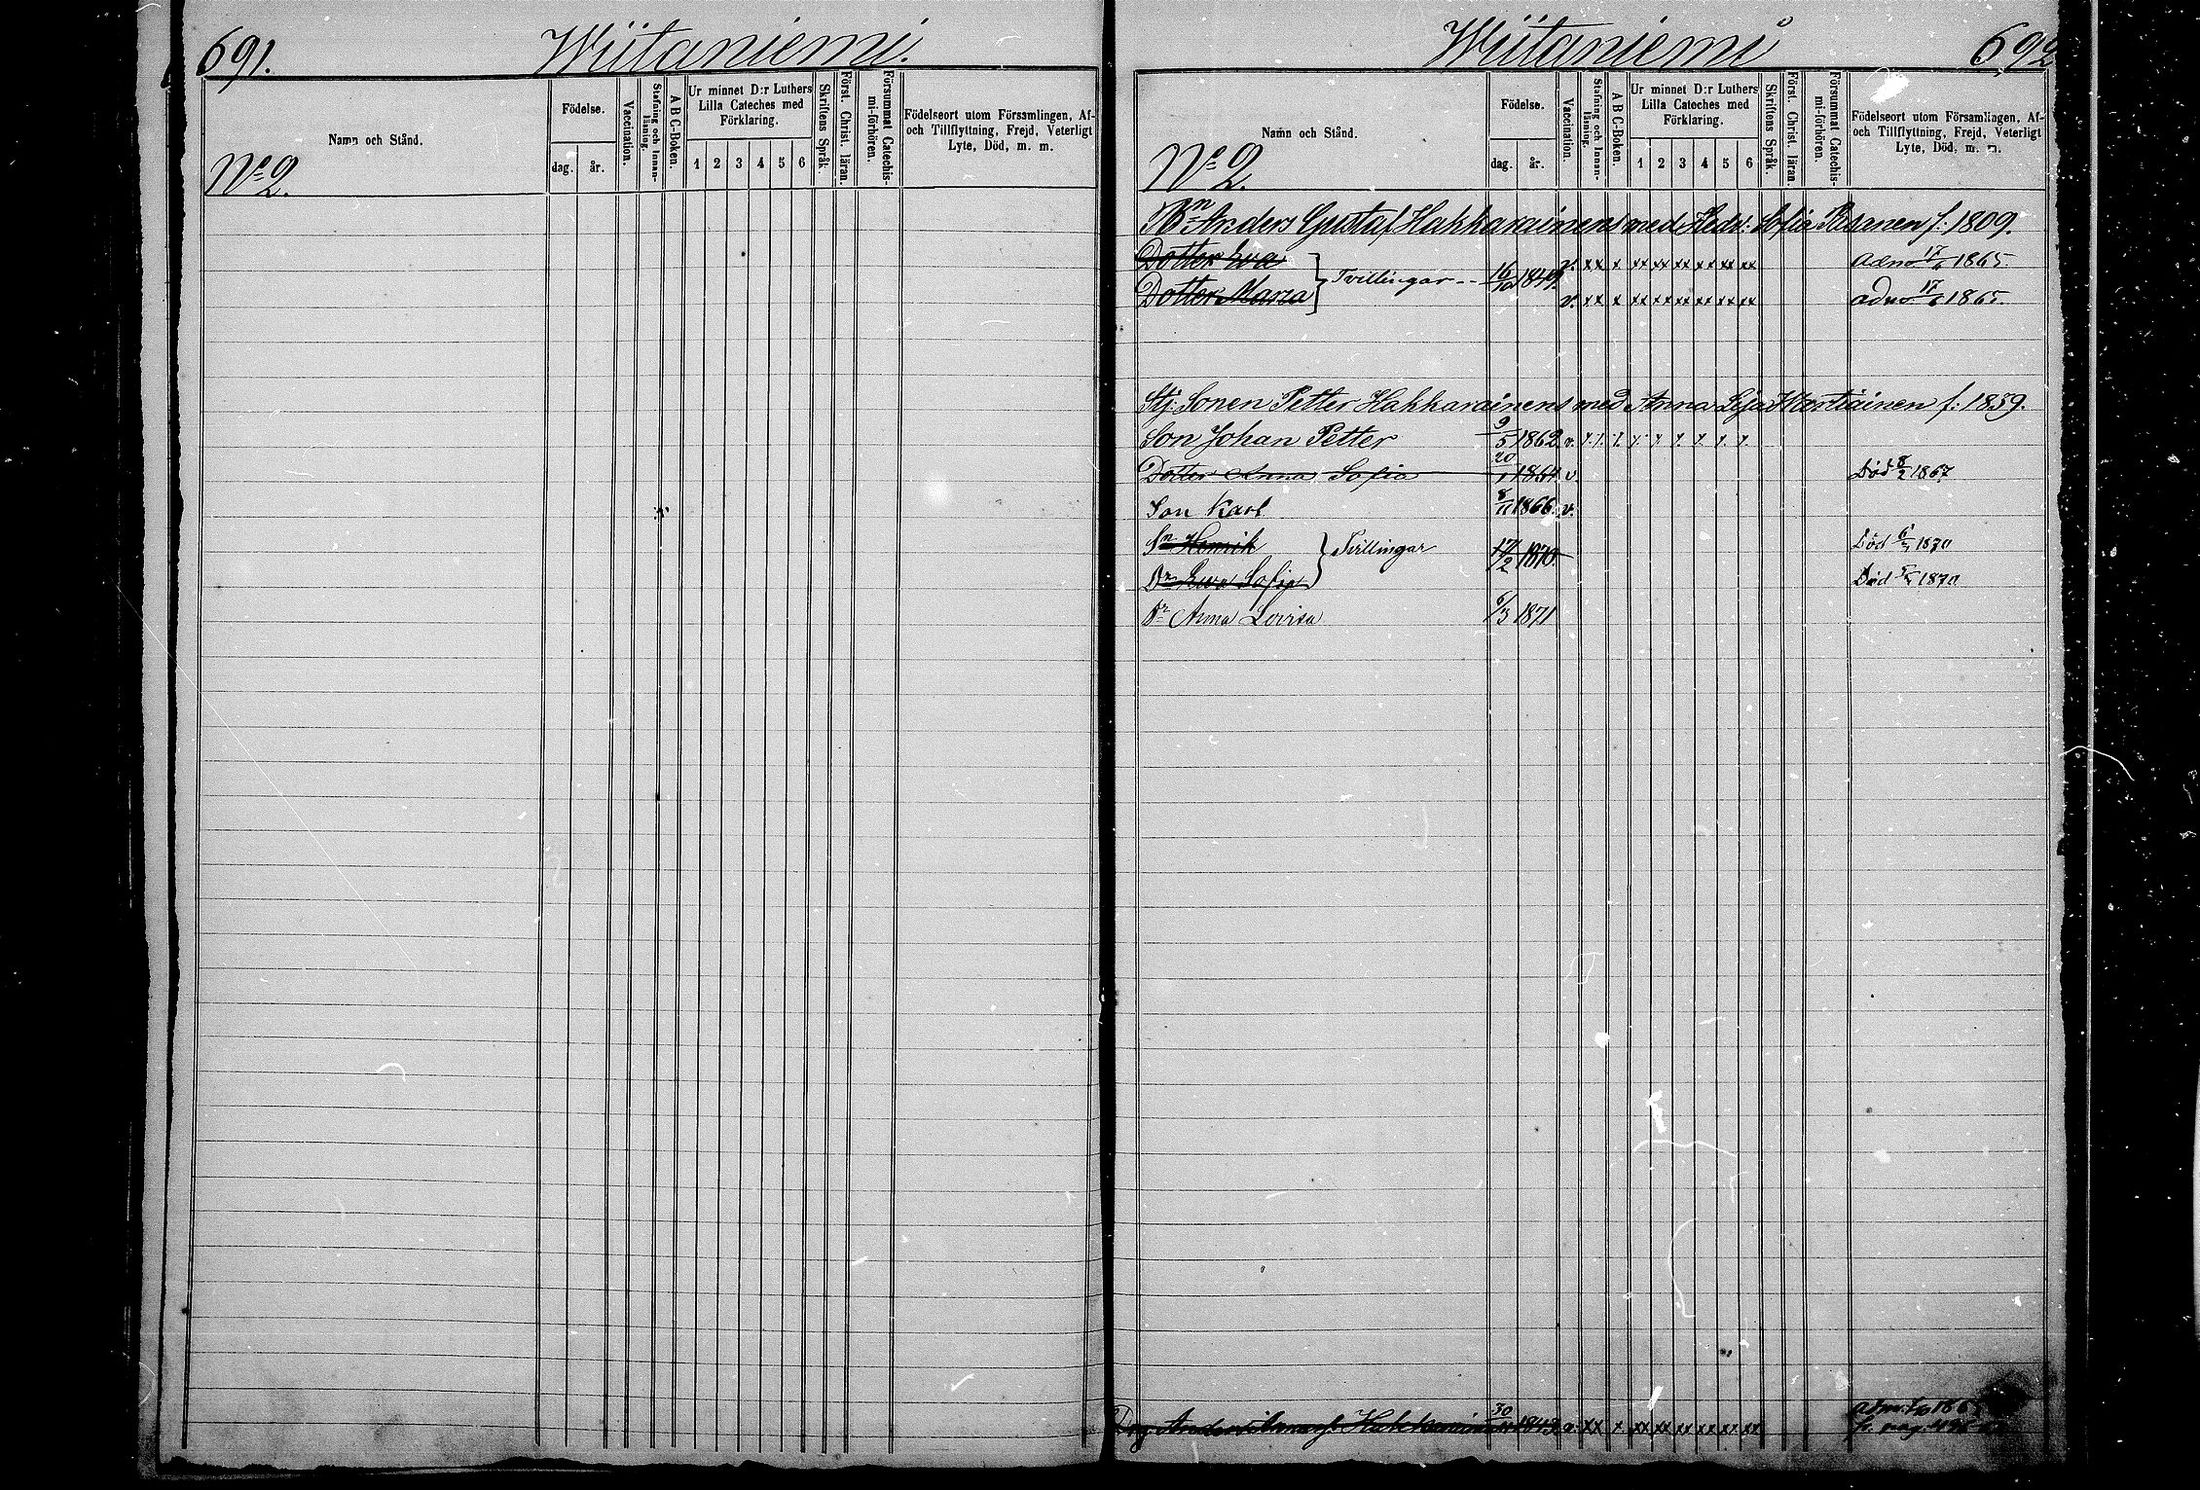 691. Wiitaniemi.
Namn och Stånd.
Födelse.
dag. år.
Vaccination.
Stafning och Innan-läsning.
A B C-Boken.
Ur minnet D:r Luthers
Lilla Cateches med
Förklaring.
1 2 3 4 5 6
Skriftens Språk.
Först. Christ. läran.
Försummat Catechis-mi-förhören.
Födelseort utom Församlingen, Af-
och Tillflyttning, Frejd, Veterligt
Lyte, Död, m. m.
No 2.
Wiitaniemi 692
Namn och Stånd.
Födelse.
dag. år.
Vaccination.
Stafning och Innan-läsning.
A B C-Boken.
Ur minnet D:r Luthers
Lilla Cateches med
Förklaring.
1 2 3 4 5 6
Skriftens Språk.
Först. Christ. läran.
Försummat Catechis-mi-förhören.
Födelseort utom Församlingen, Af-
och Tillflyttning, Frejd, Veterligt
Lyte, Död, m. m.
No 2.
Bn Anders Gustaf Hakkarainens med Hedv: Sofia f: 1809.
Dotter Eva v. xx x xx xx xx xx xx xx adm 17/6 1865.
Tvillingar -- 16/10 1849.
Dotter Maria v. xx x xx xx xx xx xx xx adm 17/6 1865.
Stj: Sonen Petter Hakkarainens med Anna Lisa f: 1839.
Son Johan Petter 9/5 1862 v.
Dotter Anna Sofia 20/1 1864 v. Död 8/2 1867
Son Karl 8/11 1866. v.
Sn Henrik Död 1870
Tvillingar 17/2 1870.
Dr Eva Sofia Död 1870
Dr Anna Lovisa 6/3 1871
Hakkarainen 30 1843 xx x xx xx xx xx xx xx adm.
fr. pag.